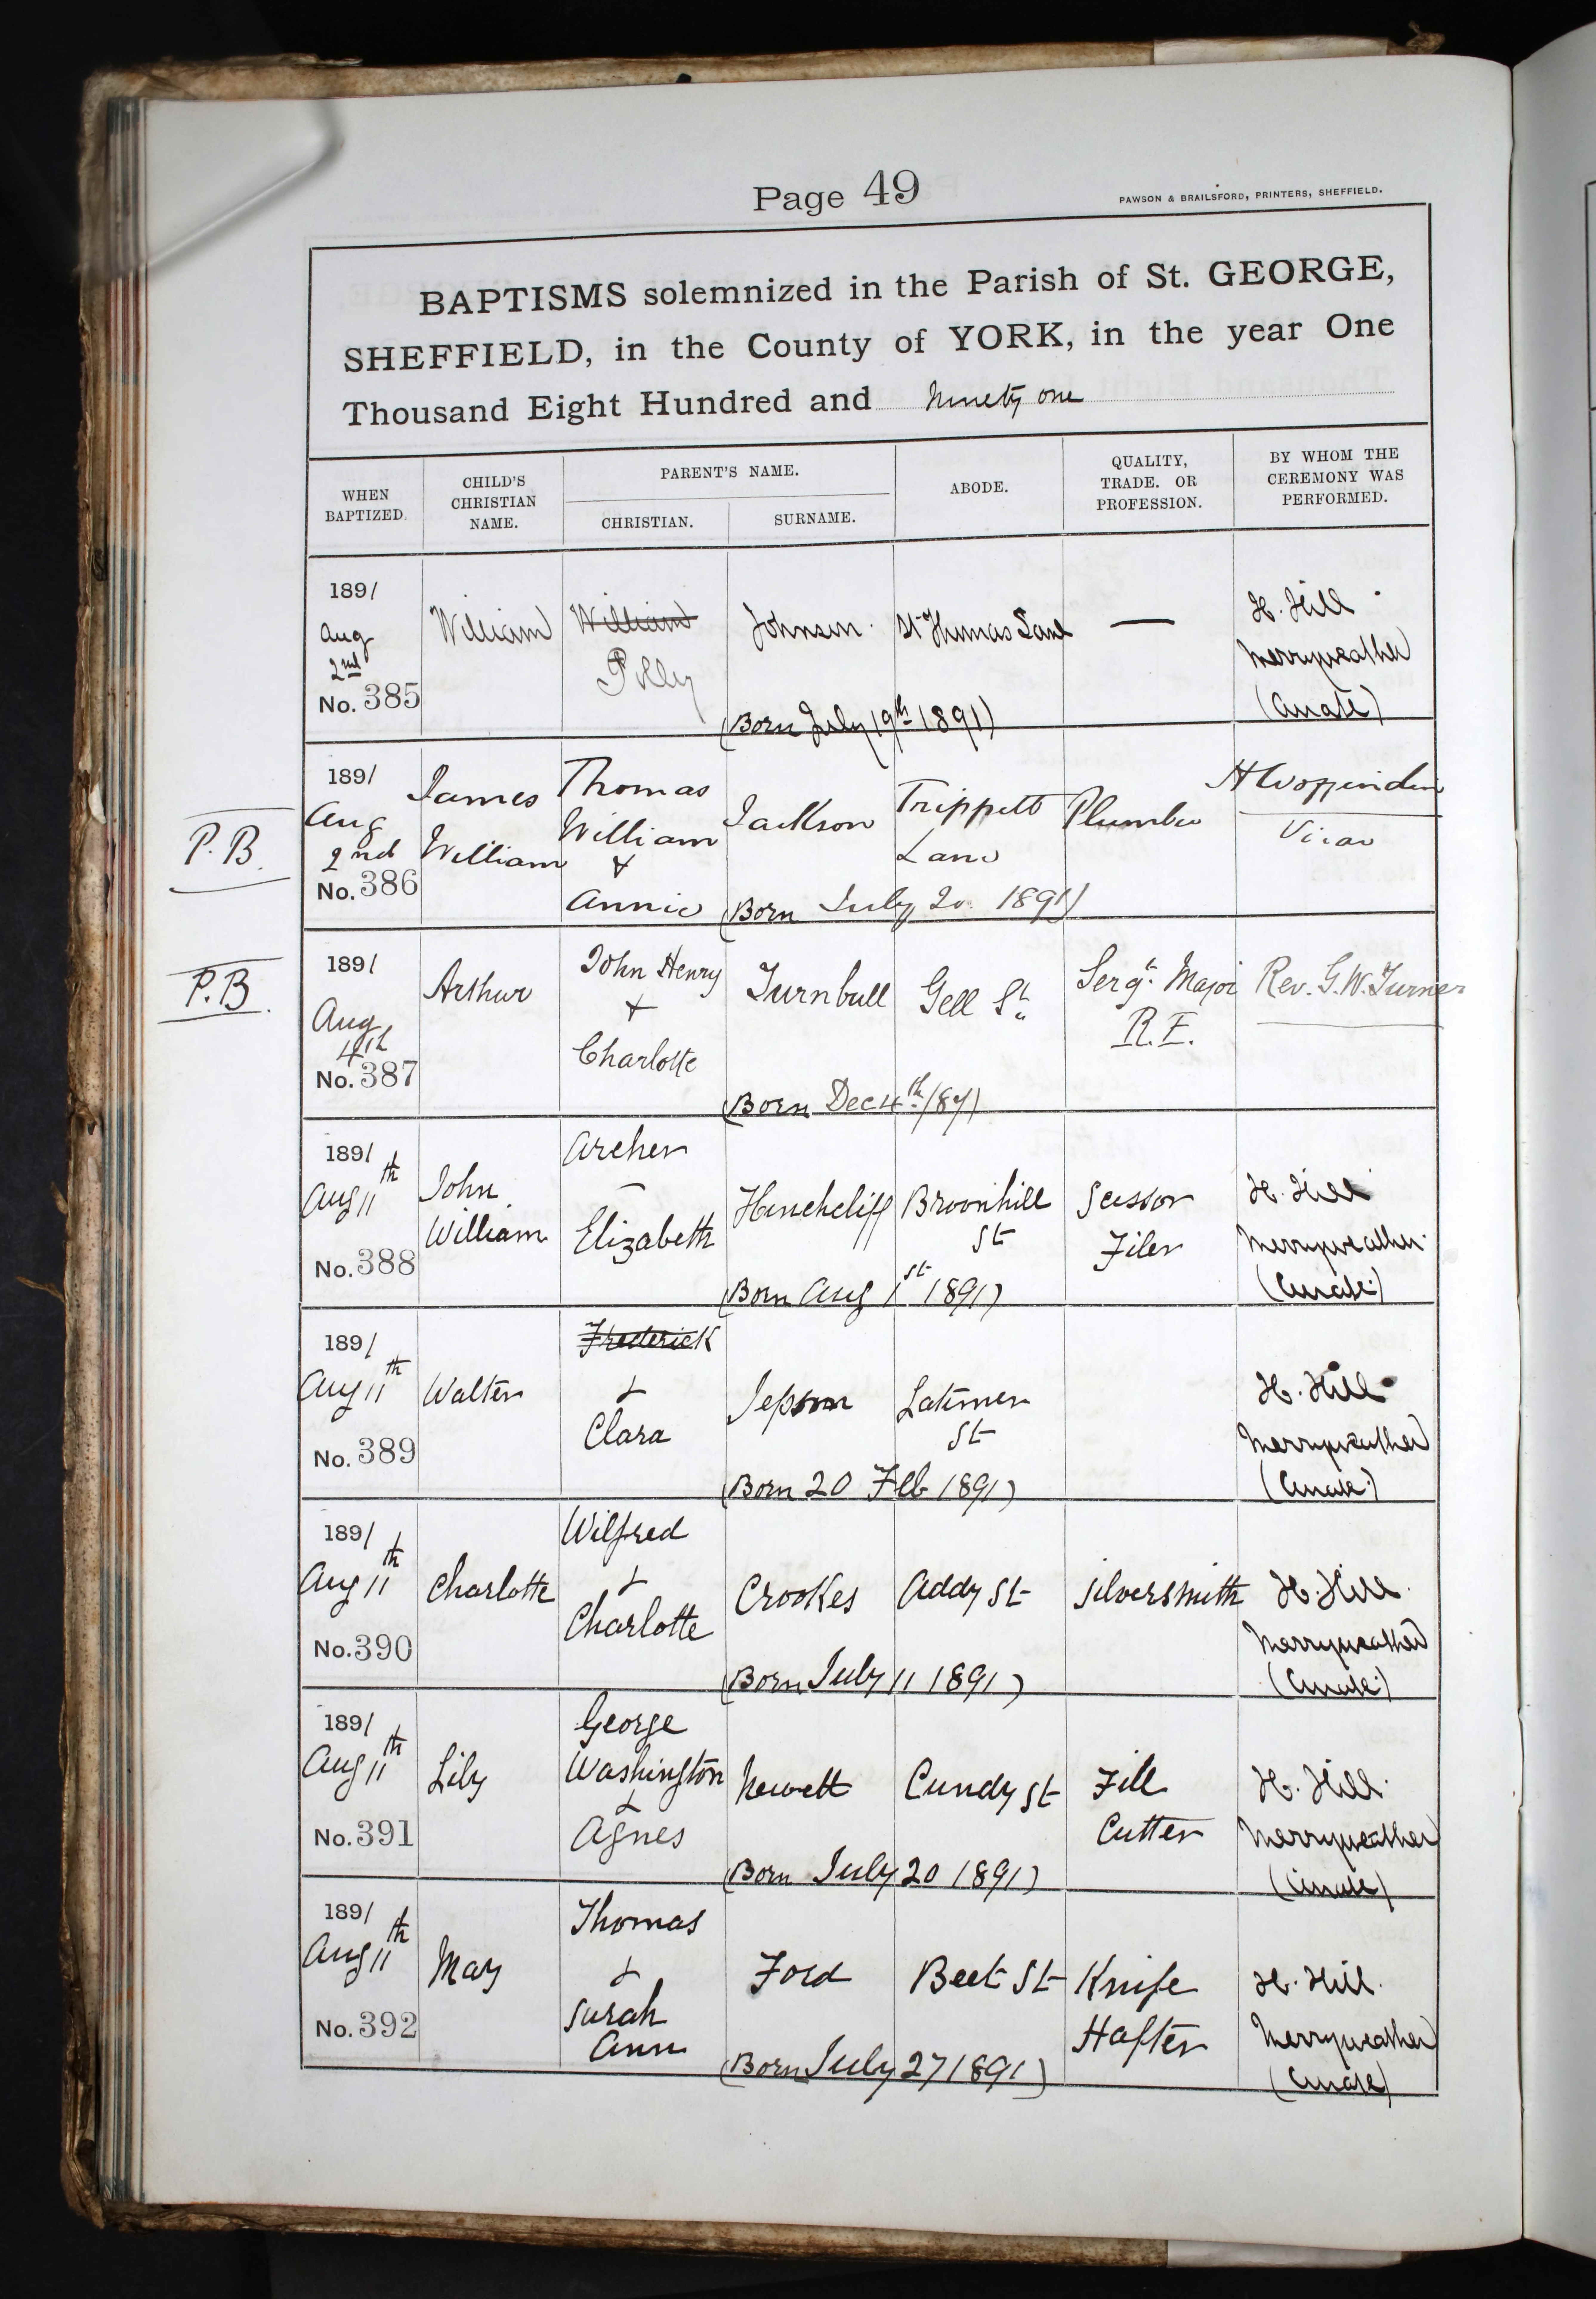 Page 49
PAWSON & BRAILSFORD, PRINTERS, SHEFFIELD.
BAPTISMS solemnized in the Parish of St. GEORGE,
SHEFFIELD, in the County of YORK, in the year One
Thousand Eight Hundred and Ninety one
WHEN BAPTIZED. CHILD'S CHRISTIAN NAME. PARENT'S NAME. CHRISTIAN. SURNAME. ABODE. QUALITY, TRADE. OR PROFESSION. BY WHOM THE CEREMONY WAS PERFORMED.
1891
Aug 2nd
No. 385
William
William
Polly
Johnson
St Thomas Lane
—
H. Hill
Merryweather
(Curate)
(Born July 19th 1891)
P.B.
1891
Aug
2nd
No. 386
James
William
Thomas
William
&
Annie
Jackson
Trippett
Lane
Plumber
Vicar
(Born July 20 1891)
P.B.
1891
Aug
4th
No. 387
Arthur
John Henry
+
Charlotte
Turnbull
Gell St.
Sergt. Major
R.E.
Rev. G. W. Turner
(Born Dec 4th /87)
1891
Aug 11th
No. 388
John
William
Archer
–
Elizabeth
Hinchcliff
Broomhill
St
Scissor
Filer
H. Hill
Merryweather
(Curate)
(Born Aug 1st 1891)
1891
Aug 11th
No. 389
Walter
Frederick
&
Clara
Jepson
Latimer
St
H. Hill
Merryweather
(Curate)
(Born 20 Feb 1891)
1891
Aug 11th
No. 390
Charlotte
Wilfred
&
Charlotte
Crookes
Addy St
Silversmith
H. Hill
Merryweather
(Curate)
(Born July 11 1891)
1891
Aug 11th
No. 391
Lily
George
Washington
&
Agnes
Hewett
Cundy St
File
Cutter
H. Hill
Merryweather
(Curate)
(Born July 20 1891)
1891
Aug 11th
No. 392
May
Thomas
&
Sarah
Ann
Ford
Beet St
Knife
Hafter
H. Hill
Merryweather
(Curate)
(Born July 27 1891)